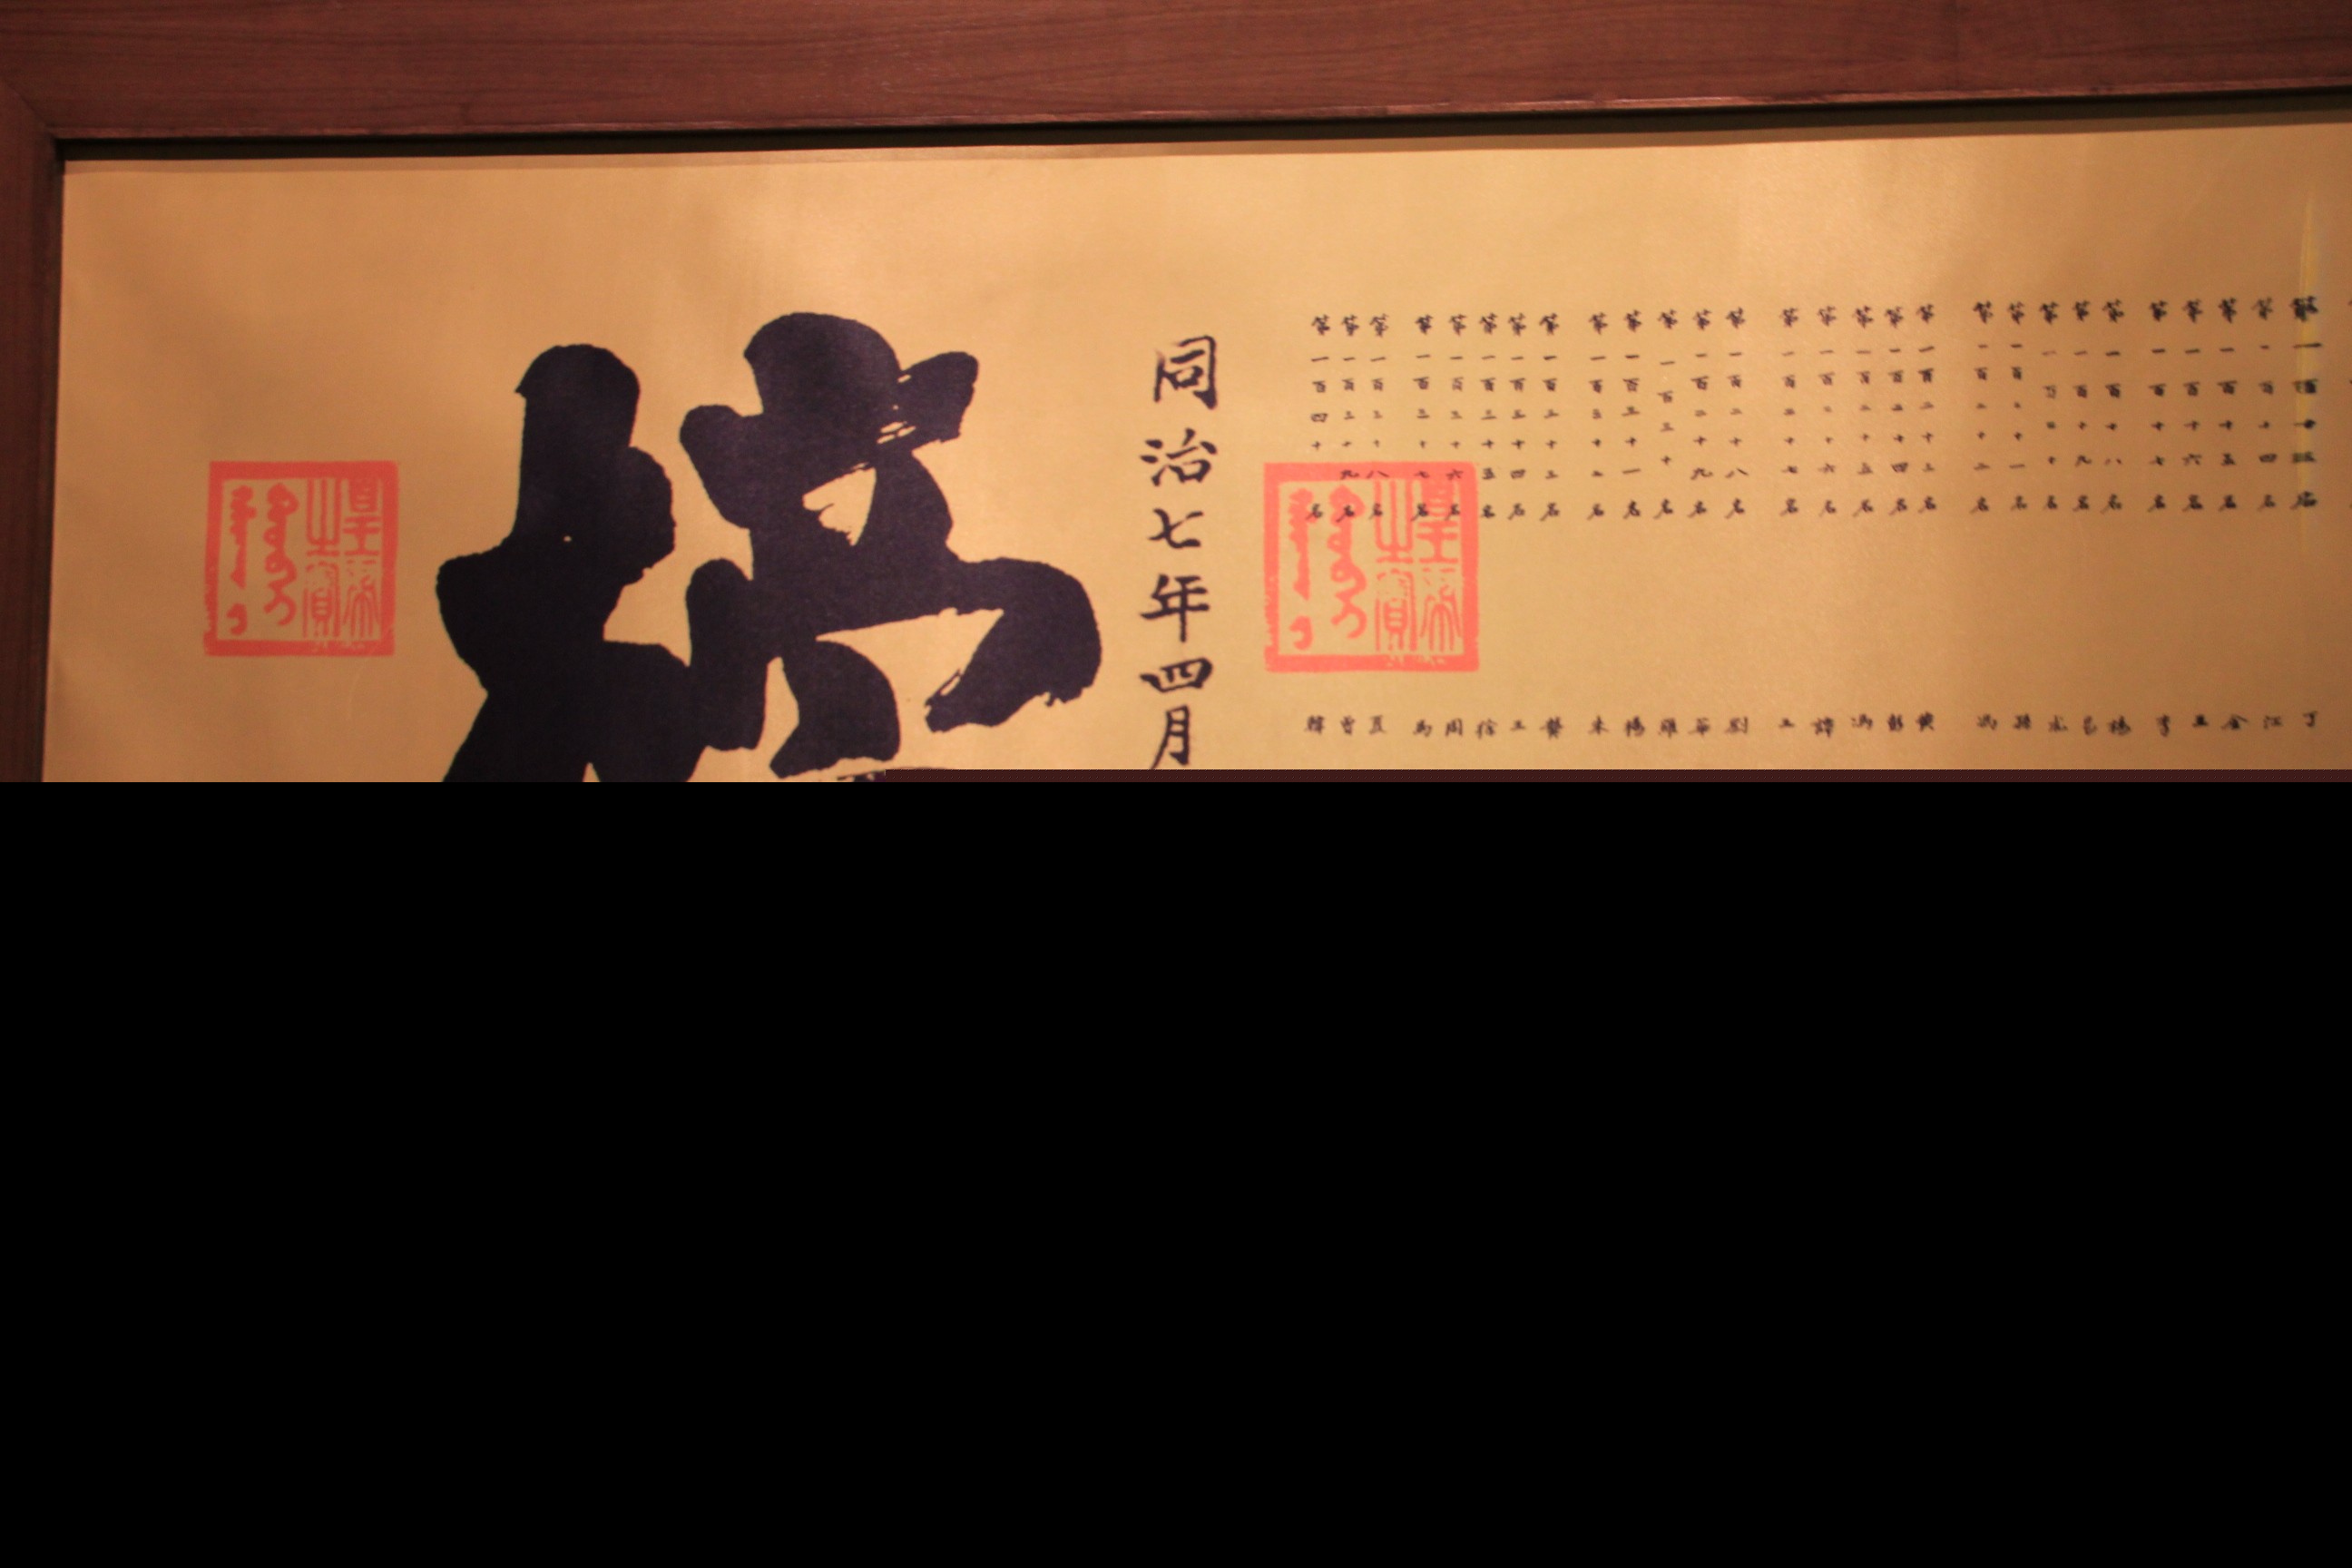 第一百十三名 丁
第一百十四名 江
第一百十五名 金
第一百十六名 王
第一百十七名 李
第一百十八名 楊
第一百十九名 易
第一百二十名
第一百二十一名 孫
第一百二十二名 馮
第一百二十三名 黄
第一百二十四名 彭
第一百二十五名 馮
第一百二十六名 譚
第一百二十七名 王
第一百二十八名 劉
第一百二十九名
第一百三十名 羅
第一百三十一名 楊
第一百三十二名 朱
第一百三十三名 龔
第一百三十四名 王
第一百三十五名 徐
第一百三十六名 周
第一百三十七名 馬
第一百三十八名 夏
第一百三十九名 曾
第一百四十名 韓
皇帝之寶
同治七年四月
榜
皇帝之寶